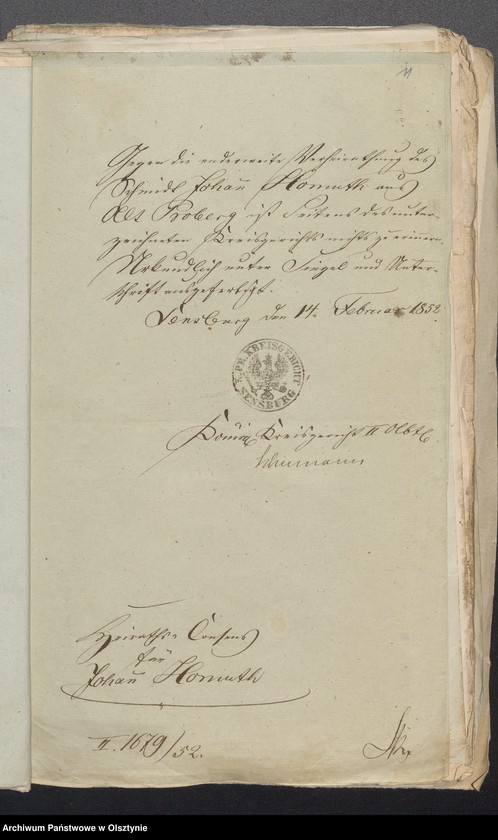 11
Gegen die anderweite Verheirathung des
Schmidt Johann Homuth aus
Alt Proberg ist Seitens des unter-
zeichneten Kreisgerichts nichts zu erinnern.
Urkundlich unter Siegel und Unter-
schrift ausgefertigt.
Sensburg den 14. Februar 1852.
K. PR. KREISGERICHT
SENSBURG
Königl. Kreisgericht II Abth.
Schumann
Heiraths-Consens
für
Johann Homuth
II. 1679/52.
Archiwum Państwowe w Olsztynie